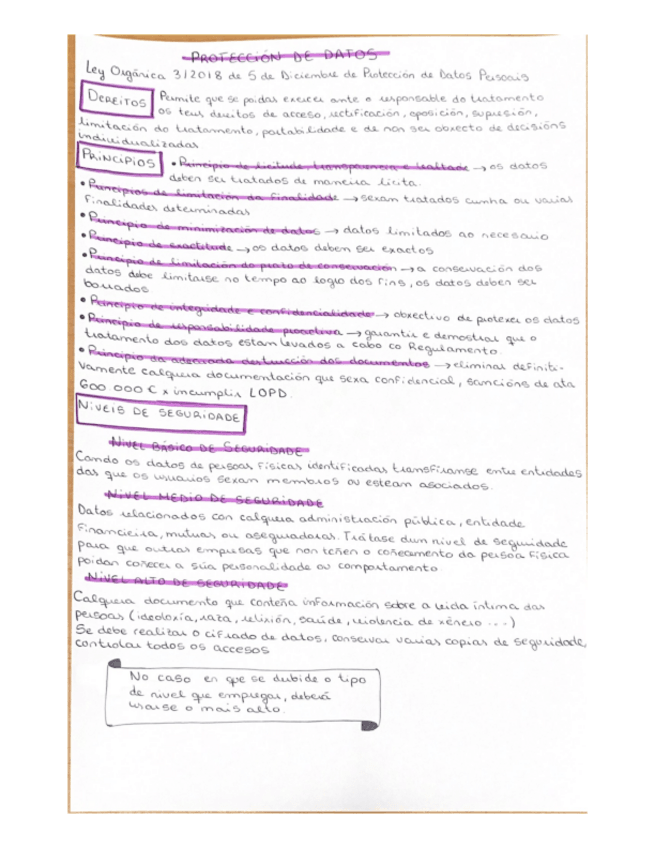 PROTECCIÓN DE DATOS
Ley Orgánica 3/2018 de 5 de Diciembre de Protección de Datos Persoais
DEREITOS Permite que se poidas exercer ante o responsable do tratamento
os teus dereitos de acceso, rectificación, oposición, supresión,
limitación do tratamento, portabilidade e de non ser obxecto de decisións
individualizadas
PRINCIPIOS • Principio de licitude, transparencia e lealtade → os datos
deben ser tratados de maneira lícita.
• Principios de limitación da finalidade → sexan tratados cunha ou varias
finalidades determinadas
• Principio de minimización de datos → datos limitados ao necesario
• Principio de exactitude → os datos deben ser exactos
• Principio de limitación do prazo de conservación → a conservación dos
datos debe limitarse no tempo ao logro dos fins, os datos deben ser
borrados
• Principio de integridade e confidencialidade → obxectivo de protexer os datos
• Principio de responsabilidade proactiva → garantir e demostrar que o
tratamento dos datos estan levados a cabo co Regulamento.
• Principio da adecuada destrucción dos documentos → eliminar definiti-
vamente calquera documentación que sexa confidencial, sancións de ata
600 000 € x incumplir LOPD.
NIVEIS DE SEGURIDADE
NIVEL BÁSICO DE SEGURIDADE
Cando os datos de persoas físicas identificadas transfiranse entre entidades
das que os usuarios sexam membros ou estean asociados.
NIVEL MEDIO DE SEGURIDADE
Datos relacionados con calquera administración pública, entidade
financieira, mutuas ou aseguradoras. Trátase dun nivel de seguridade
para que outras empresas que non teñen o coñecemento da persoa física
poidan coñecer a súa personalidade ou comportamento
NIVEL ALTO DE SEGURIDADE
Calquera documento que conteña información sobre a vida íntima das
persoas (ideoloxía, raza, relixión, saúde, violencia de xénero ...)
Se debe realizar o cifrado de datos, conservar varias copias de seguridade,
controlar todos os accesos
No caso en que se dubide o tipo
de nivel que empregar, deberá
usarse o mais alto.